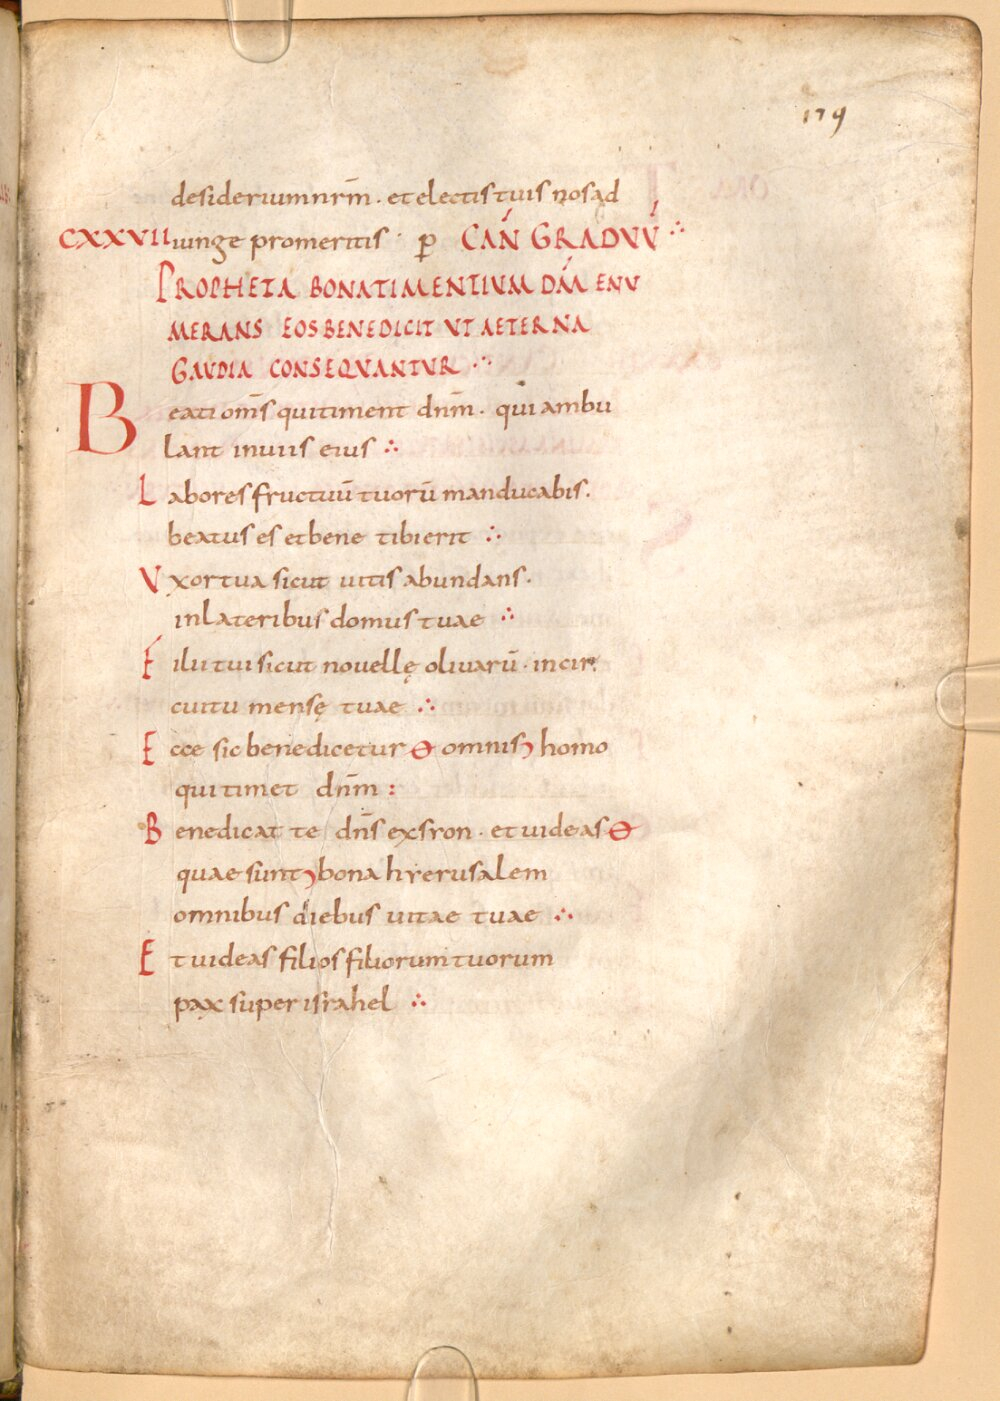 179
desiderium nrm̄ · et electis tuis nos ad
CXXVII iunge promeritis · ꝑ CAN̄ GRADUU̅ ∴
PROPHETA BONA TIMENTIUM DM̄ ENU
MERANS EOS BENEDICIT UT AETERNA
GAUDIA CONSEQUANTUR ∴
Beati om̄s qui timent dnm̄ · qui ambu
lant in uiis eius ∴
Labores fructuū tuorū manducabis ·
beatus es et bene tibi erit ∴
Uxor tua sicut uitis abundans ·
in lateribus domus tuae ∴
Filii tui sicut nouellę oliuarū · in cir
cuitu mensę tuae ∴
Ecce sic benedicetur ⦵ omnis homo
qui timet dnm̄ :
Benedicat te dn̄s ex sion · et uideas ⦵
quae sunt bona hyerusalem
omnibus diebus uitae tuae ∴
Et uideas filios filiorum tuorum
pax super israhel ∴